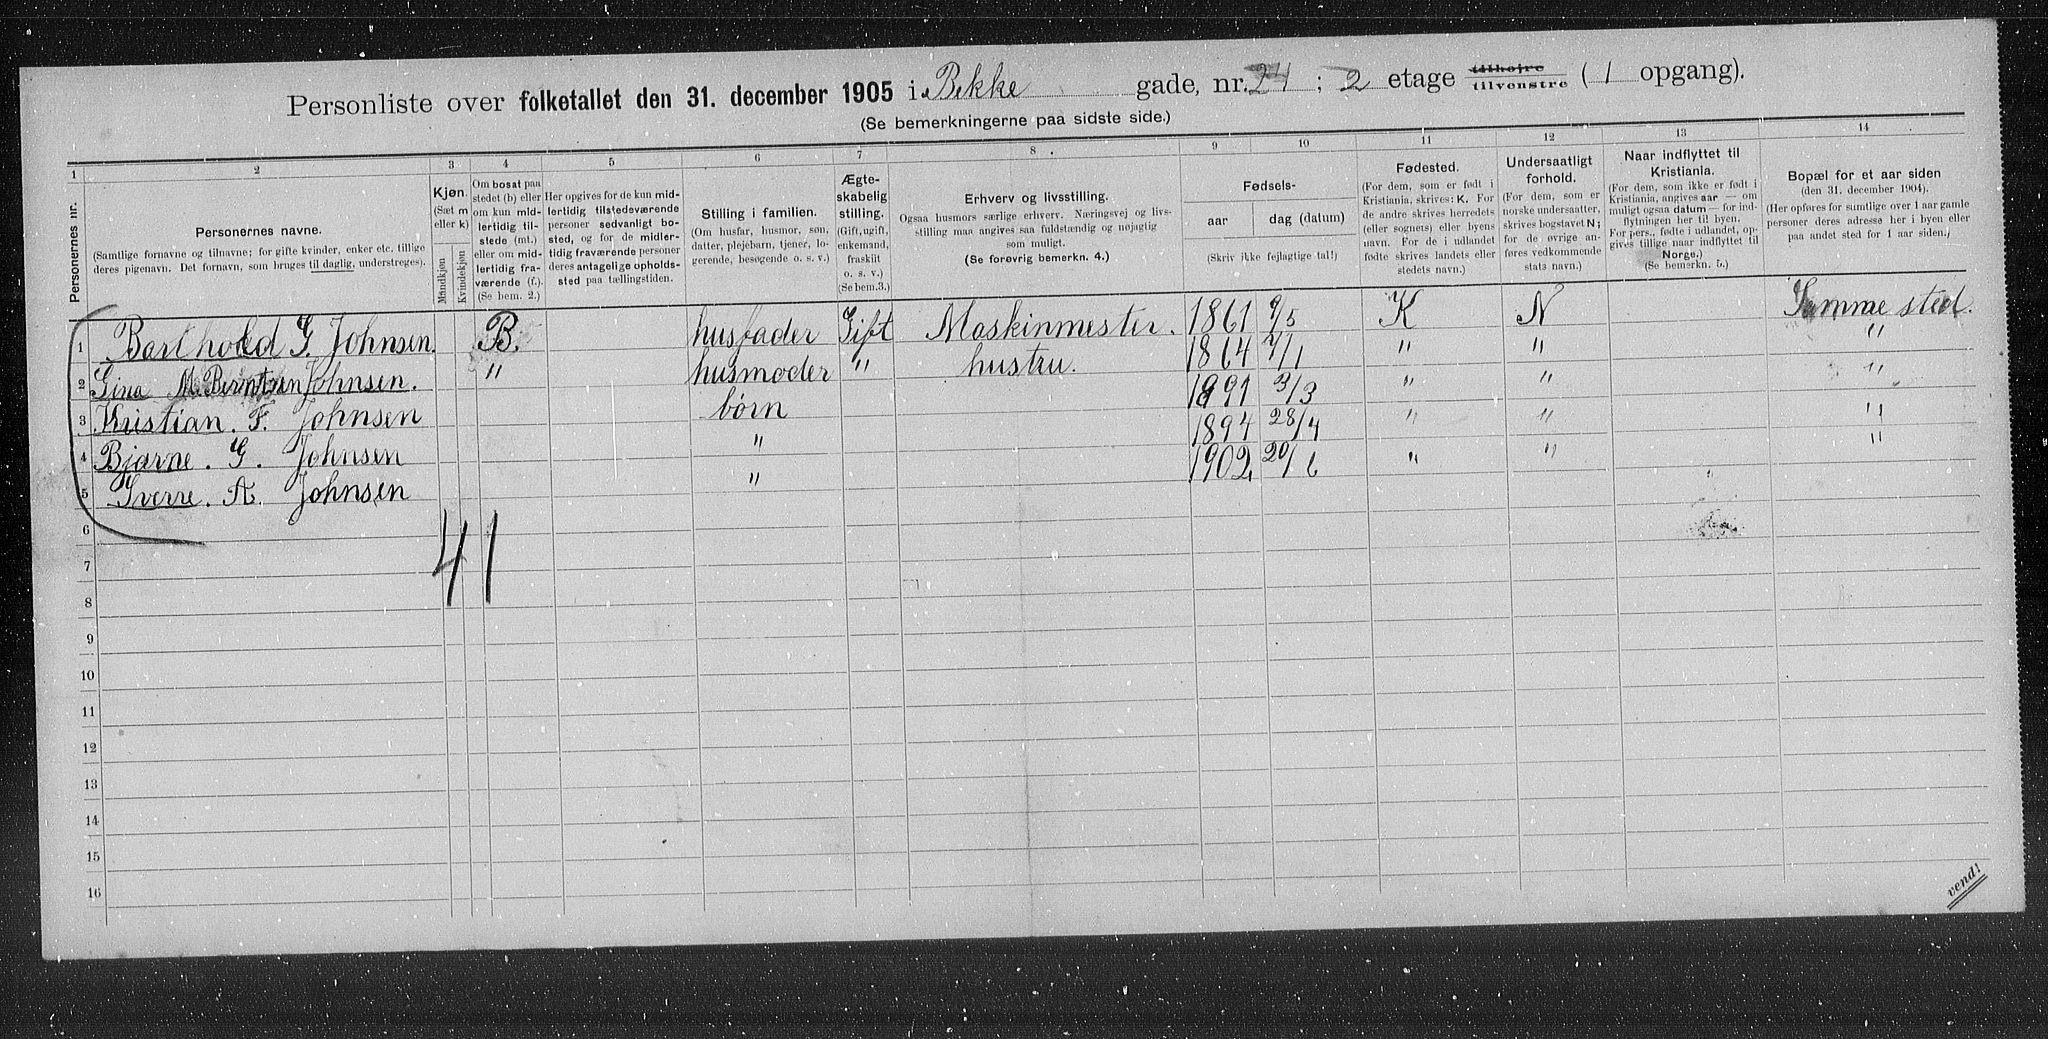 Personliste over folketallet den 31. december 1905 i Bekke gade, nr. 24 ; 2 etage tilhøjre tilvenstre ( 1 opgang).
(Se bemerkningerne paa sidste side.)
1 2 3 4 5 6 7 8 9 10 11 12 13 14
Personernes nr.
Personernes navne.
(Samtlige fornavne og tilnavne; for gifte kvinder, enker etc. tillige
deres pigenavn. Det fornavn, som bruges til daglig, understreges).
Kjøn.
(Sæt m
eller k)
Mandkjøn
Kvindekjøn
Om bosat paa
stedet (b) eller
om kun mid-
lertidig til-
stede (mt.)
eller om mid-
lertidig fra-
værende (f.).
(Se bem. 2.)
Her opgives for de kun mid-
lertidig tilstedeværende
personer sedvanligt bo-
sted, og for de midler-
tidig fraværende personer
deres antagelige opholds-
sted paa tællingstiden.
Stilling i familien.
(Om husfar, husmor, søn,
datter, plejebarn, tjener, lo-
gerende, besøgende o. s. v.)
Ægte-
skabelig
stilling.
(Gift, ugift,
enkemand,
fraskilt
o. s. v.)
(Se bem.3.)
Erhverv og livsstilling.
Ogsaa husmors særlige erhverv. Næringsvej og livs-
stilling maa angives saa fuldstændig og nøjagtig
som muligt.
(Se forøvrig bemerkn. 4.)
Fødsels-
aar dag (datum)
(Skriv ikke fejlagtige tal!)
Fødested.
(For dem, som er født i
Kristiania, skrives: K. For
de andre skrives herredets
(eller sognets) eller byens
navn. For de i udlandet
fødte skrives landets eller
stedets navn.)
Undersaatligt
forhold.
(For dem, som er
norske undersaatter,
skrives bogstavet N;
for de øvrige an-
føres vedkommende
stats navn.)
Naar indflyttet til
Kristiania.
(For dem, som ikke er født i
Kristiania, angives aar — om
muligt ogsaa datum — for ind-
flytningen her til byen.
For pers., fødte i udlandet, op-
gives tillige naar indflyttet til
Norge.)
(Se bemerkn. 5.)
Bopæl for et aar siden
(den 31. december 1904).
(Her opføres for samtlige over 1 aar gamle
personer deres adresse her i byen eller
paa andet sted for 1 aar siden.)
1 Barthold G. Johnsen. B. husfader Gift Maskinmester. 1861 9/5 K N Samme sted.
2 Gina M. Berntsen Johnsen. " husmoder " hustru. 1864 7/1 " " "
3 Kristian. F. Johnsen børn 1891 3/3 " " "
4 Bjarne. G. Johnsen " 1894 28/4 " " "
5 Sverre. A. Johnsen " 1902. 20/6 " " "
6
41
7
8
9
10
11
12
13
14
15
16
vend!